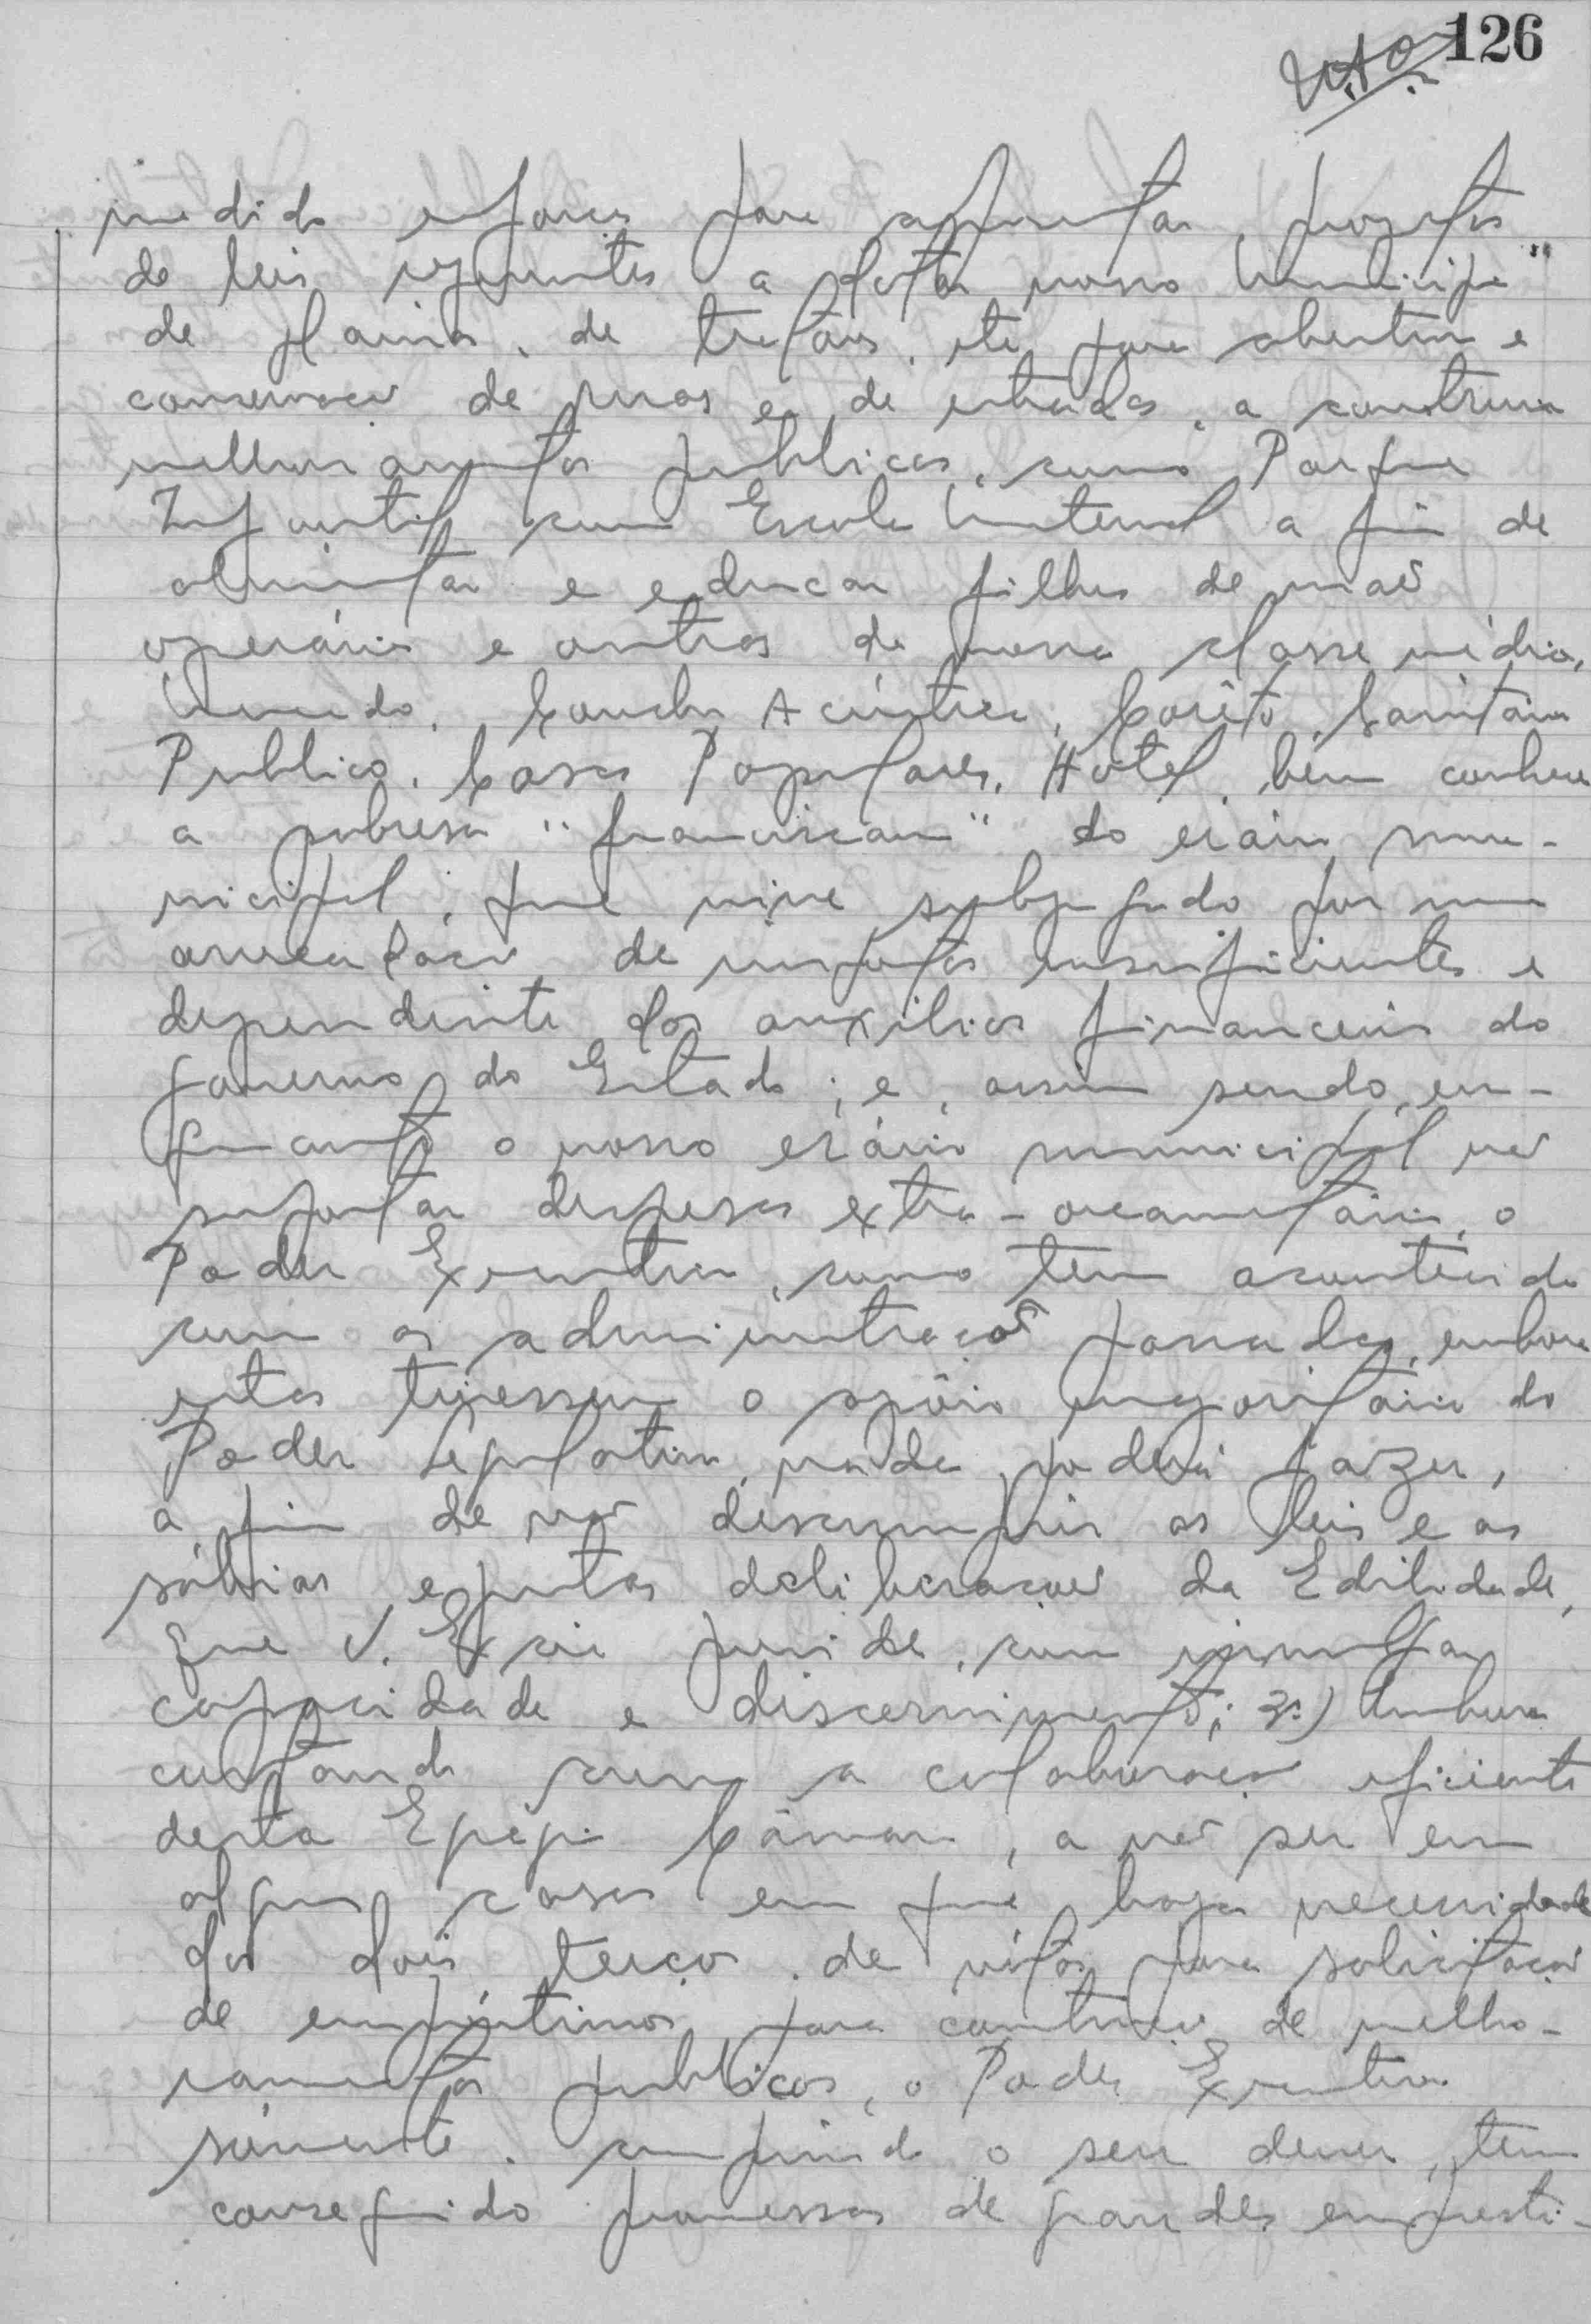 126
medido esforços para apresentar projetos
de leis referentes a dotar nosso Municipio
de plainas, de tratôres, etc, para abertura e
conservação de ruas e de estradas, a construir
melhoramentos publicos, como Parque
Infantil com Escola Maternal a fim de
alimentar e educar filhos de mãe
operária e outros de nossa classe média,
Mercado, Concha Acústica, Corêto, Sanitário
Publico, Casas Populares, Hotel, bem conhece
a pobresa "franciscana" do erário mu-
nicipal, que vive subjugado por uma
arrecadação de impostos insuficientes e
dependente dos auxilios financeiros do
governo do Estado; e, assim sendo, en-
quanto o nosso erário municipal não
suportar despesas extra-orçamentárias, o
Poder Executivo, como tem acontecido
com as administrações passadas, embora
estas tivessem o apôio majoritário do
Poder Legislativo, nada poderá fazer,
a fim de não descumprir as leis e as
sábias e justas deliberações da Edilidade,
que V. Excia preside, com
capacidade e discernimento; 3º) Embora
contando com a colaboração eficiente
desta Egrégia Câmara, a não ser em
alguns casos em que haja necessidade
dos dois terços de votos para solicitação
de empréstimos para construção de melho-
ramentos publicos, o Poder Executivo
sòmente, cumprindo o seu dever, tem
conseguido promessas de grandes emprésti-